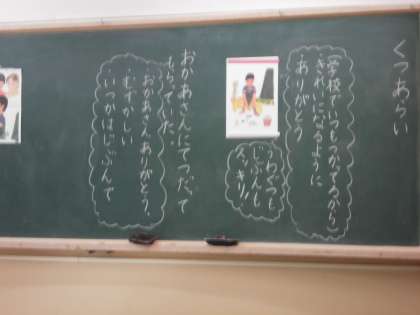 くつあらい
(学校でいつもつかってるから)
きれいになるように
ありがとう
うわぐつも
じぶんも
スッキリ!
おかあさんにてつだって
もらっていた。
おかあさんありがとう。
むずかしい
いつかはじぶんで